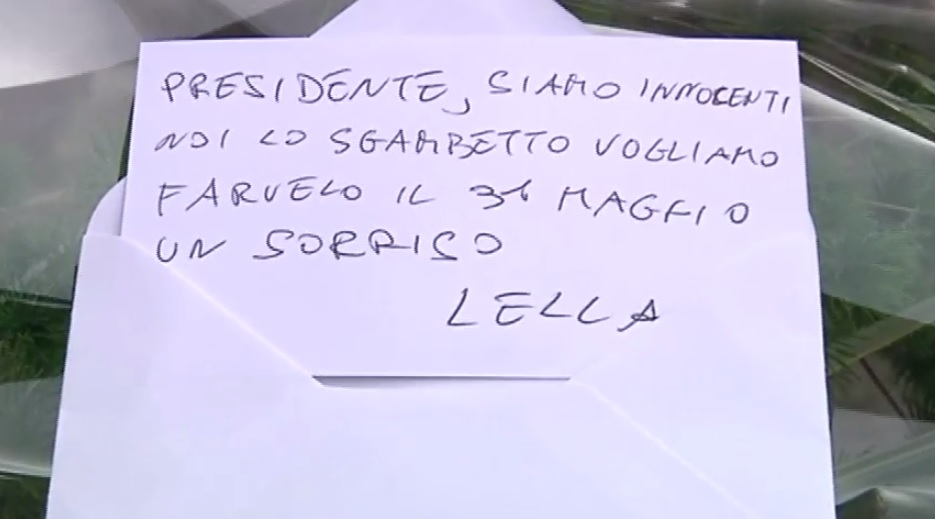 PRESIDENTE, SIAMO INNOCENTI
NOI LO SGAMBETTO VOGLIAMO
FARVELO IL 31 MAGGIO
UN SORRISO
LELLA